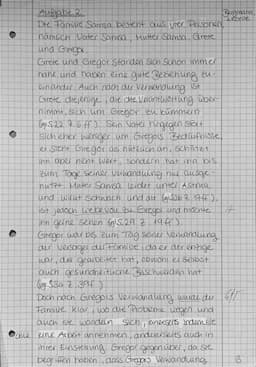 Aufgabe 2
Die Familie Samsa besteht aus vier Personen,
nämlich Vater Samsa, Mutter Samsa, Grete
und Gregor.
Grete und Gregor standen sich schon immer
nahe und haben eine gute Beziehung zu-
einander. Auch nach der Verwandlung ist
Grete diejenige, die die Verantwortung über-
nimmt, sich um Gregor zu kümmern
Sein Vater hingegen stört
sich eher weniger um Gregors Bedürfnisse,
er sieht Gregor als nützlich an, schätzt
ihn aber nicht wert, sondern hat ihn bis
zum Tage seiner Verwandlung nur ausge-
nutzt. Mutter Samsa leidet unter Asthma
und wirkt schwach und alt
ist jedoch liebevoll zu Gregor und möchte
ihn gerne sehen
Gregor war bis zum Tag seiner Verwandlung
der Versorger der Familie, da er der einzige
war, der gearbeitet hat, obwohl er selbst
auch gesundheitliche Beschwerden hat
Doch nach Gregors Verwandlung wurde der
Familie klar, wo die Probleme liegen und
auch sie wandeln sich, einerseits indem sie
eine Arbeit annehmen, andererseits auch in
ihrer Einstellung Gregor gegenüber, da sie
begriffen haben, dass Gregors Verwandlung